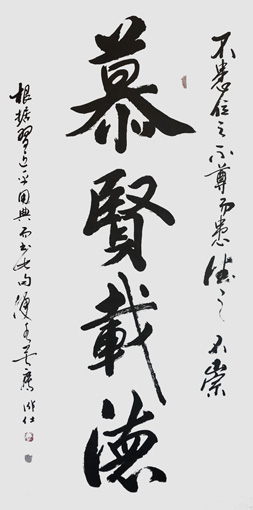 不患位之不尊而患德之不崇
慕賢載德
根據習近平用典而书此句